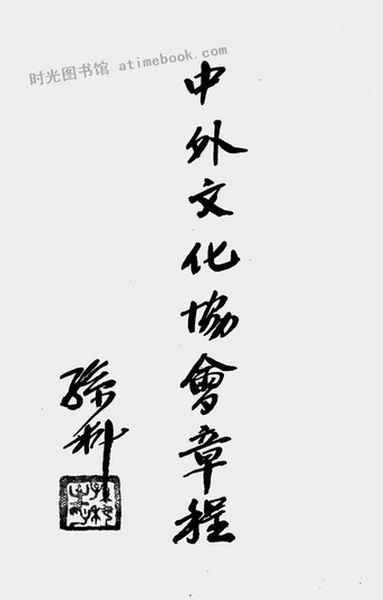 时光图书馆 atimebook.com
中外文化協會章程
孫科